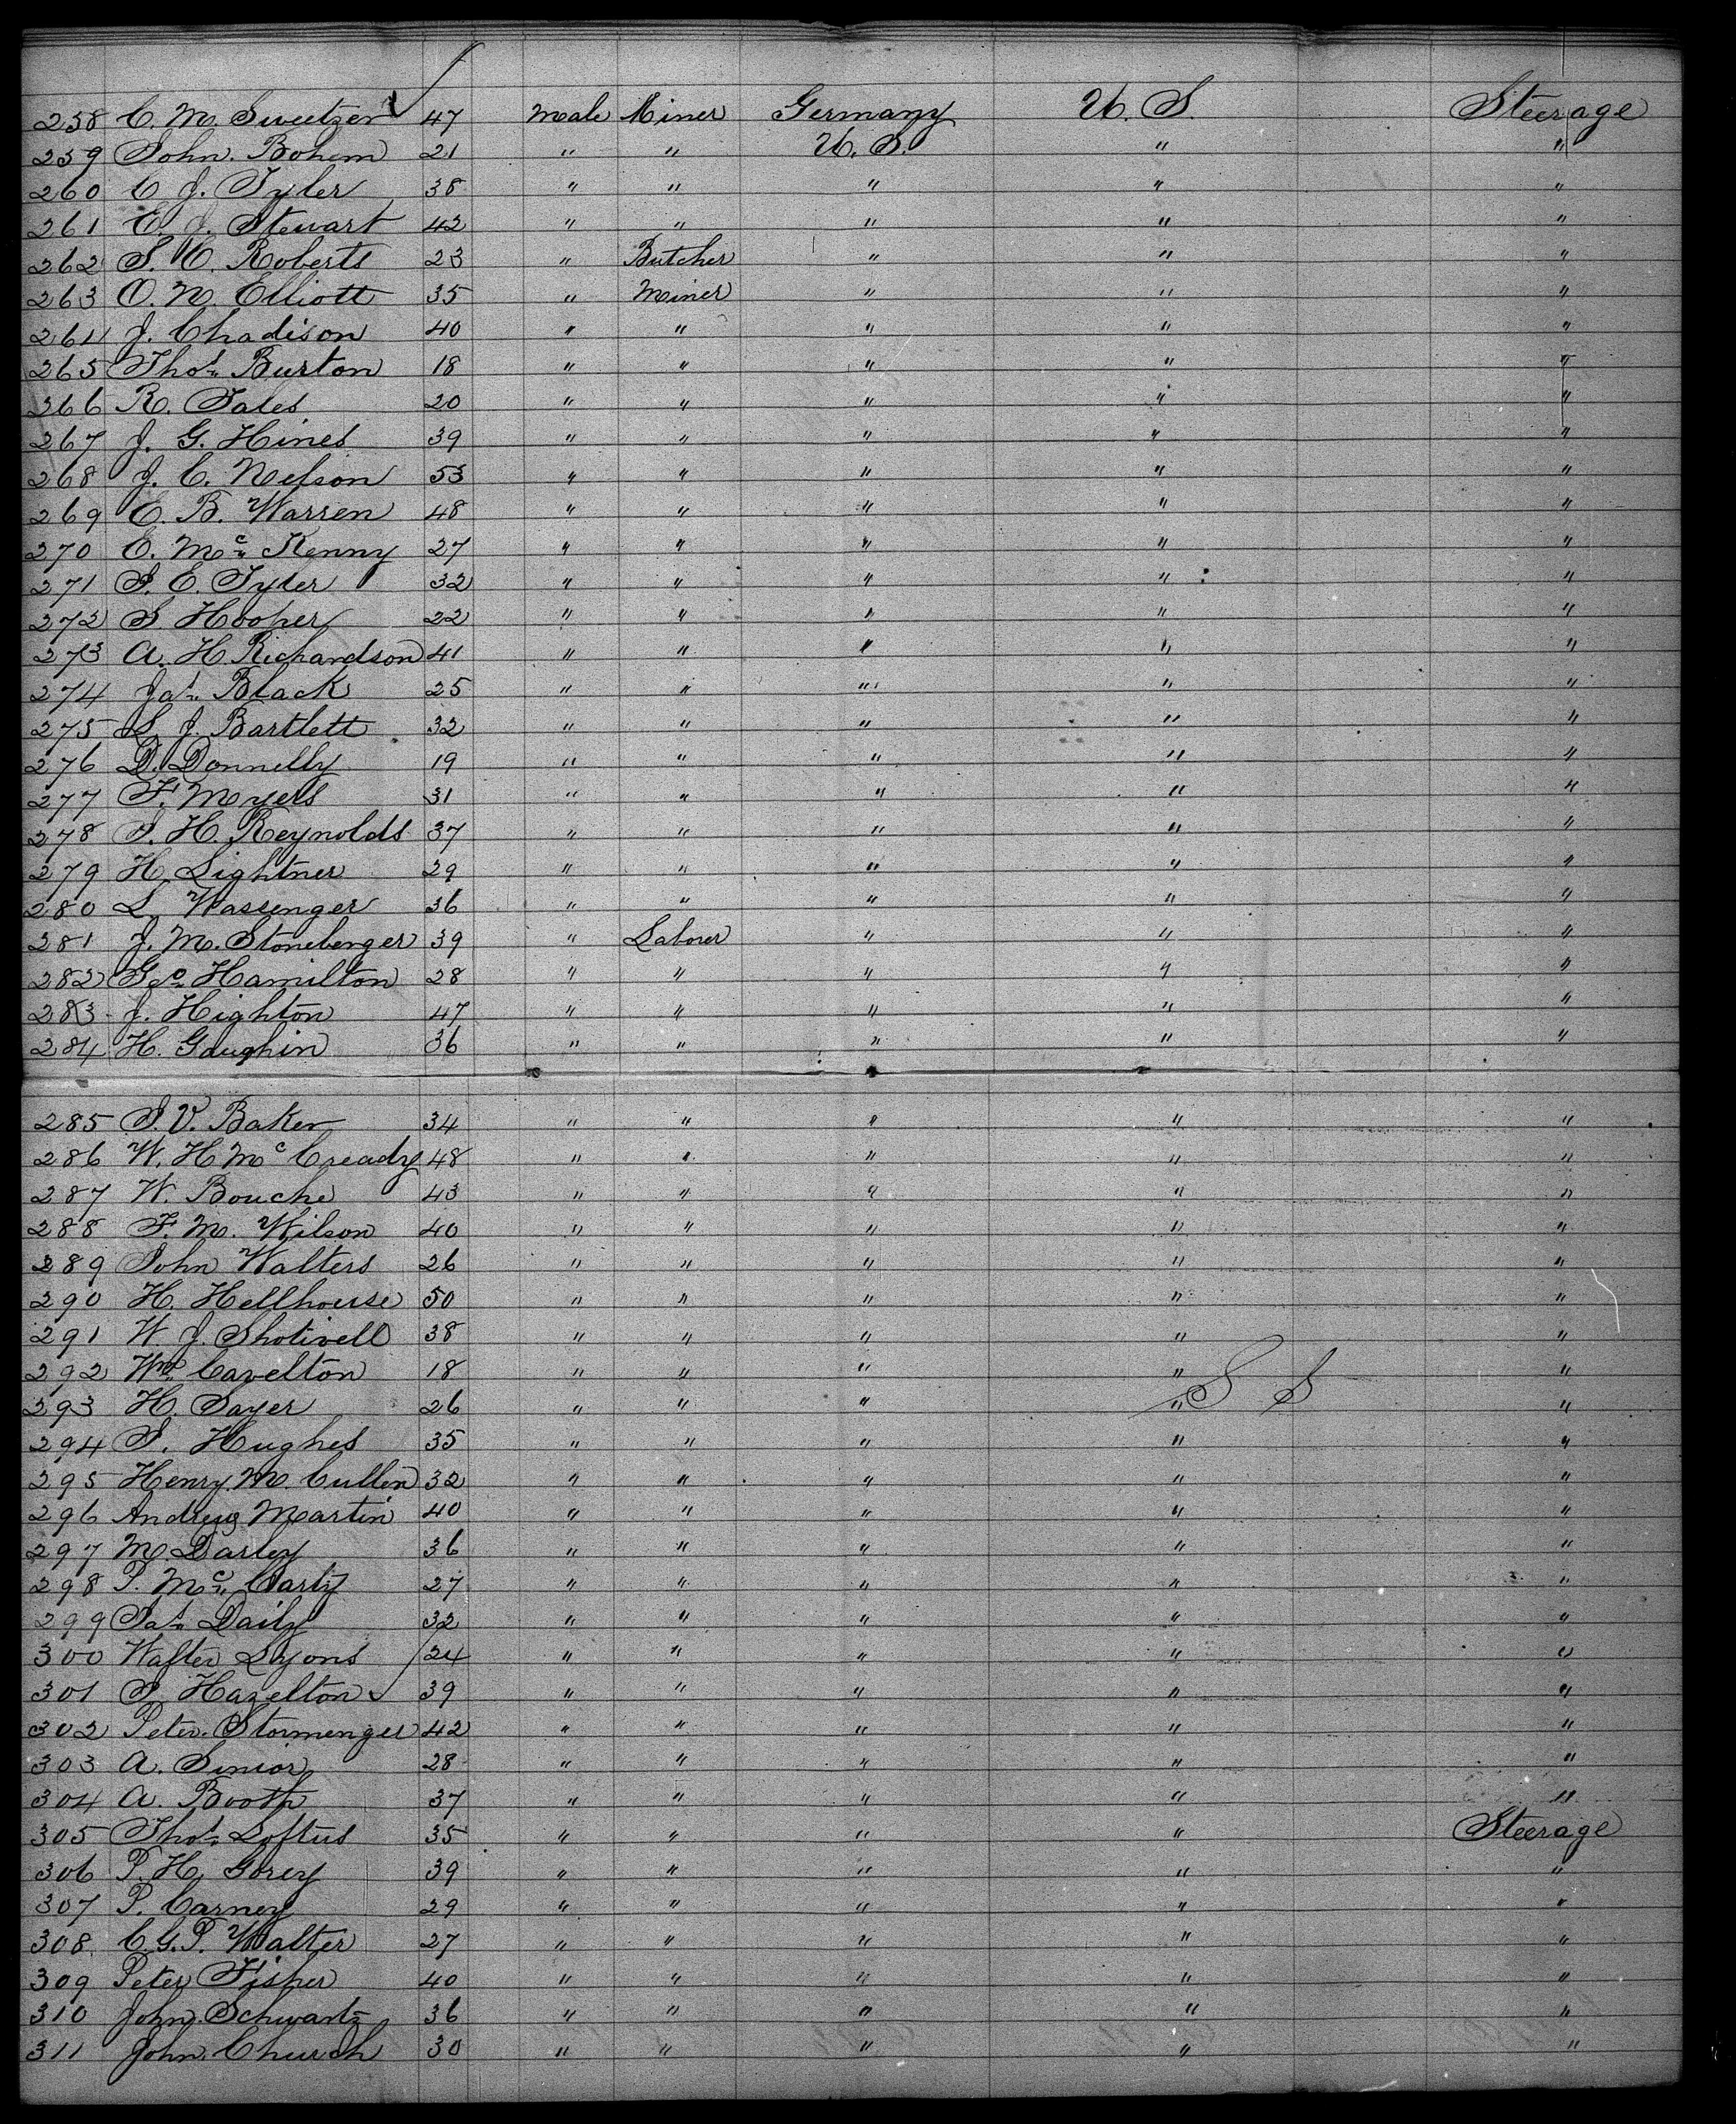 258 C. M. Sweetzer 47 Male Miner Germany U. S. Steerage
259 John Bohem 21 " " U. S. " "
260 C. J. Tyler 38 " " " " "
261 E. J. Stewart 42 " " " " "
262 S. C. Roberts 23 " Butcher " " "
263 O. N. Elliott 35 " Miner " " "
264 J. Chadison 40 " " " " "
265 Thos. Burton 18 " " " " "
266 R. Sales 20 " " " " "
267 J. G. Hines 39 " " " " "
268 J. C. Nelson 53 " " " " "
269 E. B. Warren 48 " " " " "
270 C. Mc Kenny 27 " " " " "
271 S. E. Tyler 32 " " " " "
272 S. Hooper 22 " " " " "
273 A. H. Richardson 41 " " " " "
274 Jas. Black 25 " " " " "
275 S. J. Bartlett 32 " " " " "
276 D. Donnelly 19 " " " " "
277 F. Meyers 31 " " " " "
278 S. H. Reynolds 37 " " " " "
279 H. Lightner 29 " " " " "
280 L. Wassenger 36 " " " " "
281 J. M. Stoneberger 39 " Laborer " " "
282 Geo. Hamilton 28 " " " " "
283 J. Highton 47 " " " " "
284 H. Gaughin 36 " " " " "
285 S. V. Baker 34 " " " " "
286 W. H. Mc Cready 48 " " " " "
287 W. Bouche 43 " " " " "
288 F. M. Wilson 40 " " " " "
289 John Walters 26 " " " " "
290 H. Hellhouse 50 " " " " "
291 W. J. Shotwell 38 " " " " "
292 Wm. Cavelton 18 " " " " "
293 H. Sayer 26 " " " " S S "
294 S. Hughes 35 " " " " "
295 Henry M. Cullen 32 " " " " "
296 Andrew Martin 40 " " " " "
297 M. Darley 36 " " " " "
298 P. Mc Carty 27 " " " " "
299 Pat. Daily 32 " " " " "
300 Walter Lyons 24 " " " " "
301 S. Hazelton 39 " " " " "
302 Peter Stormenger 42 " " " " "
303 A. Senior 28 " " " " "
304 A. Booth 37 " " " " "
305 Thos. Loftus 35 " " " " Steerage
306 P. H. Gorey 39 " " " " "
307 P. Carney 29 " " " " "
308 C. G. P. Walter 27 " " " " "
309 Peter Fisher 40 " " " " "
310 John Schwartz 36 " " " " "
311 John Church 30 " " " " "